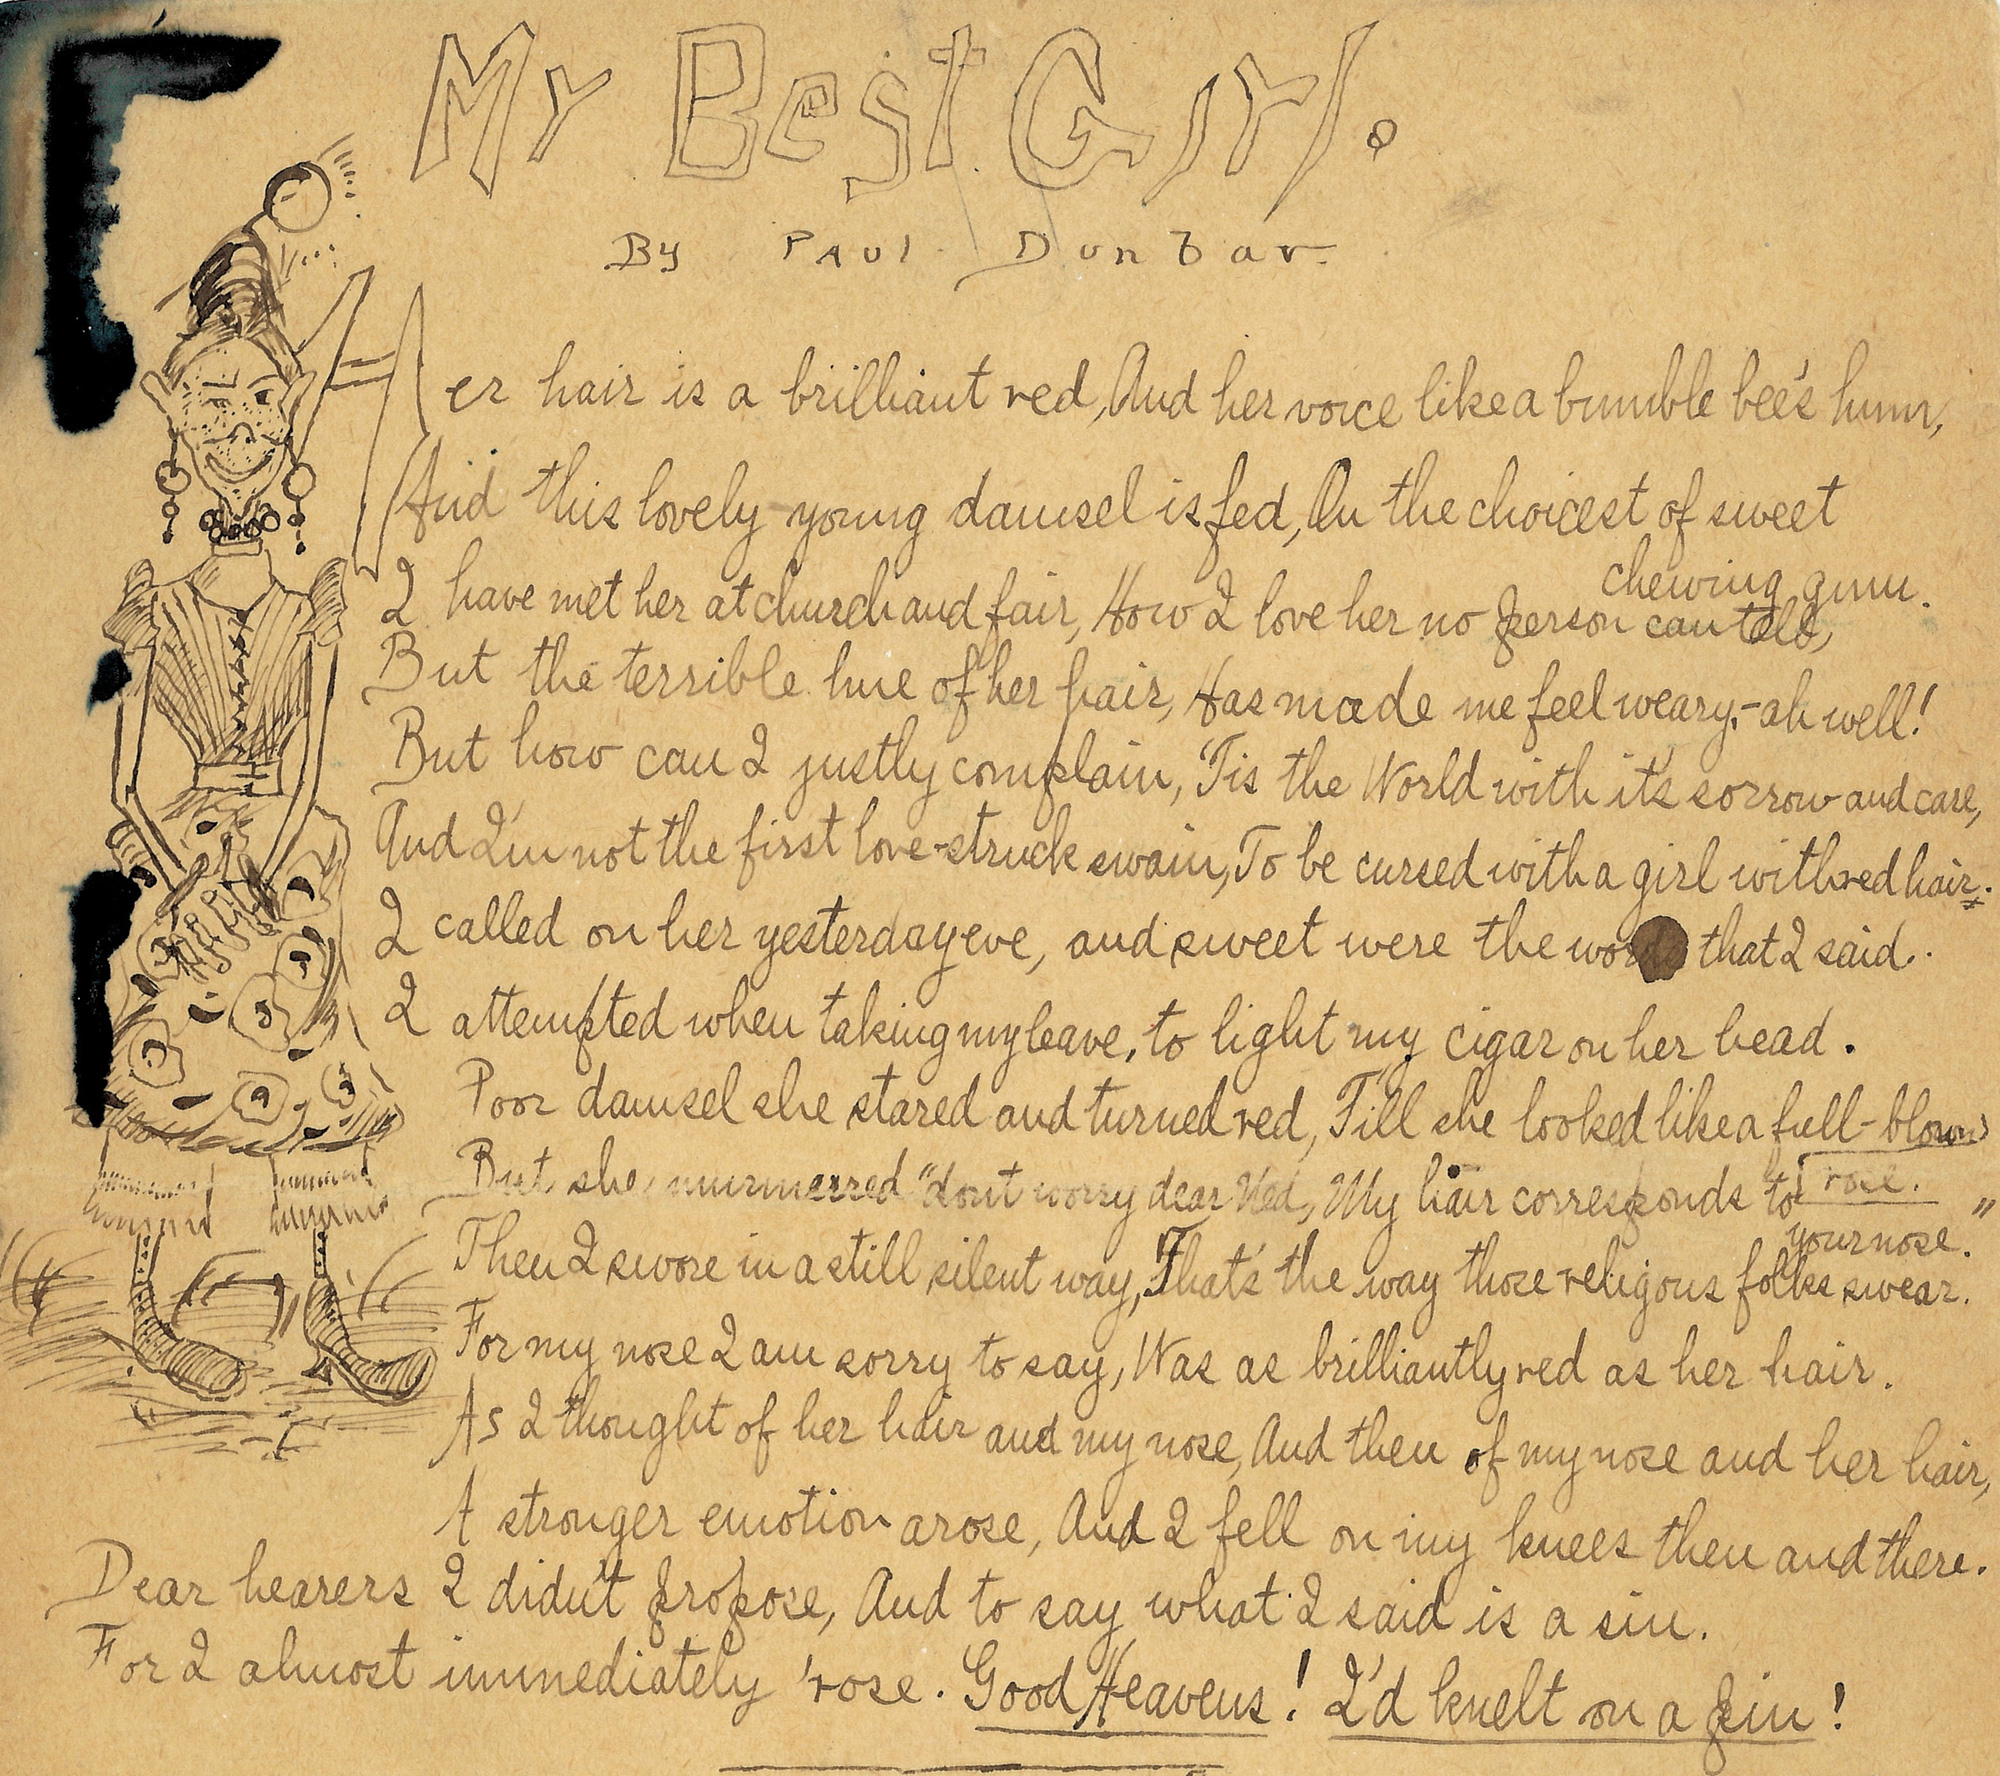 My Best Girl.
By Paul Dunbar.
Her hair is a brilliant red, And her voice like a bumble bee's hum,
And this lovely young damsel is fed, On the choicest of sweet
chewing gum.
I have met her at church and fair, How I love her no person can tell,
But the terrible hue of her hair, Has made me feel weary,-ah well!
But how can I justly complain, 'Tis the World with it's sorrow and care,
And I'm not the first love-struck swain, To be cursed with a girl with red hair.
I called on her yesterday eve, and sweet were the words that I said.
I attempted when taking my leave, to light my cigar on her head.
Poor damsel she stared and turned red, Till she looked like a full-blown
rose.
But she murmerred "dont worry dear Ned, My hair corresponds to
your nose."
Then I swore in a still silent way, That's the way those religous folks swear.
For my nose I am sorry to say, Was as brilliantly red as her hair.
As I thought of her hair and my nose, And then of my nose and her hair,
A stronger emotion arose, And I fell on my knees then and there.
Dear hearers I didn't propose, And to say what I said is a sin.
For I almost immediately 'rose. Good Heavens! I'd knelt on a pin!